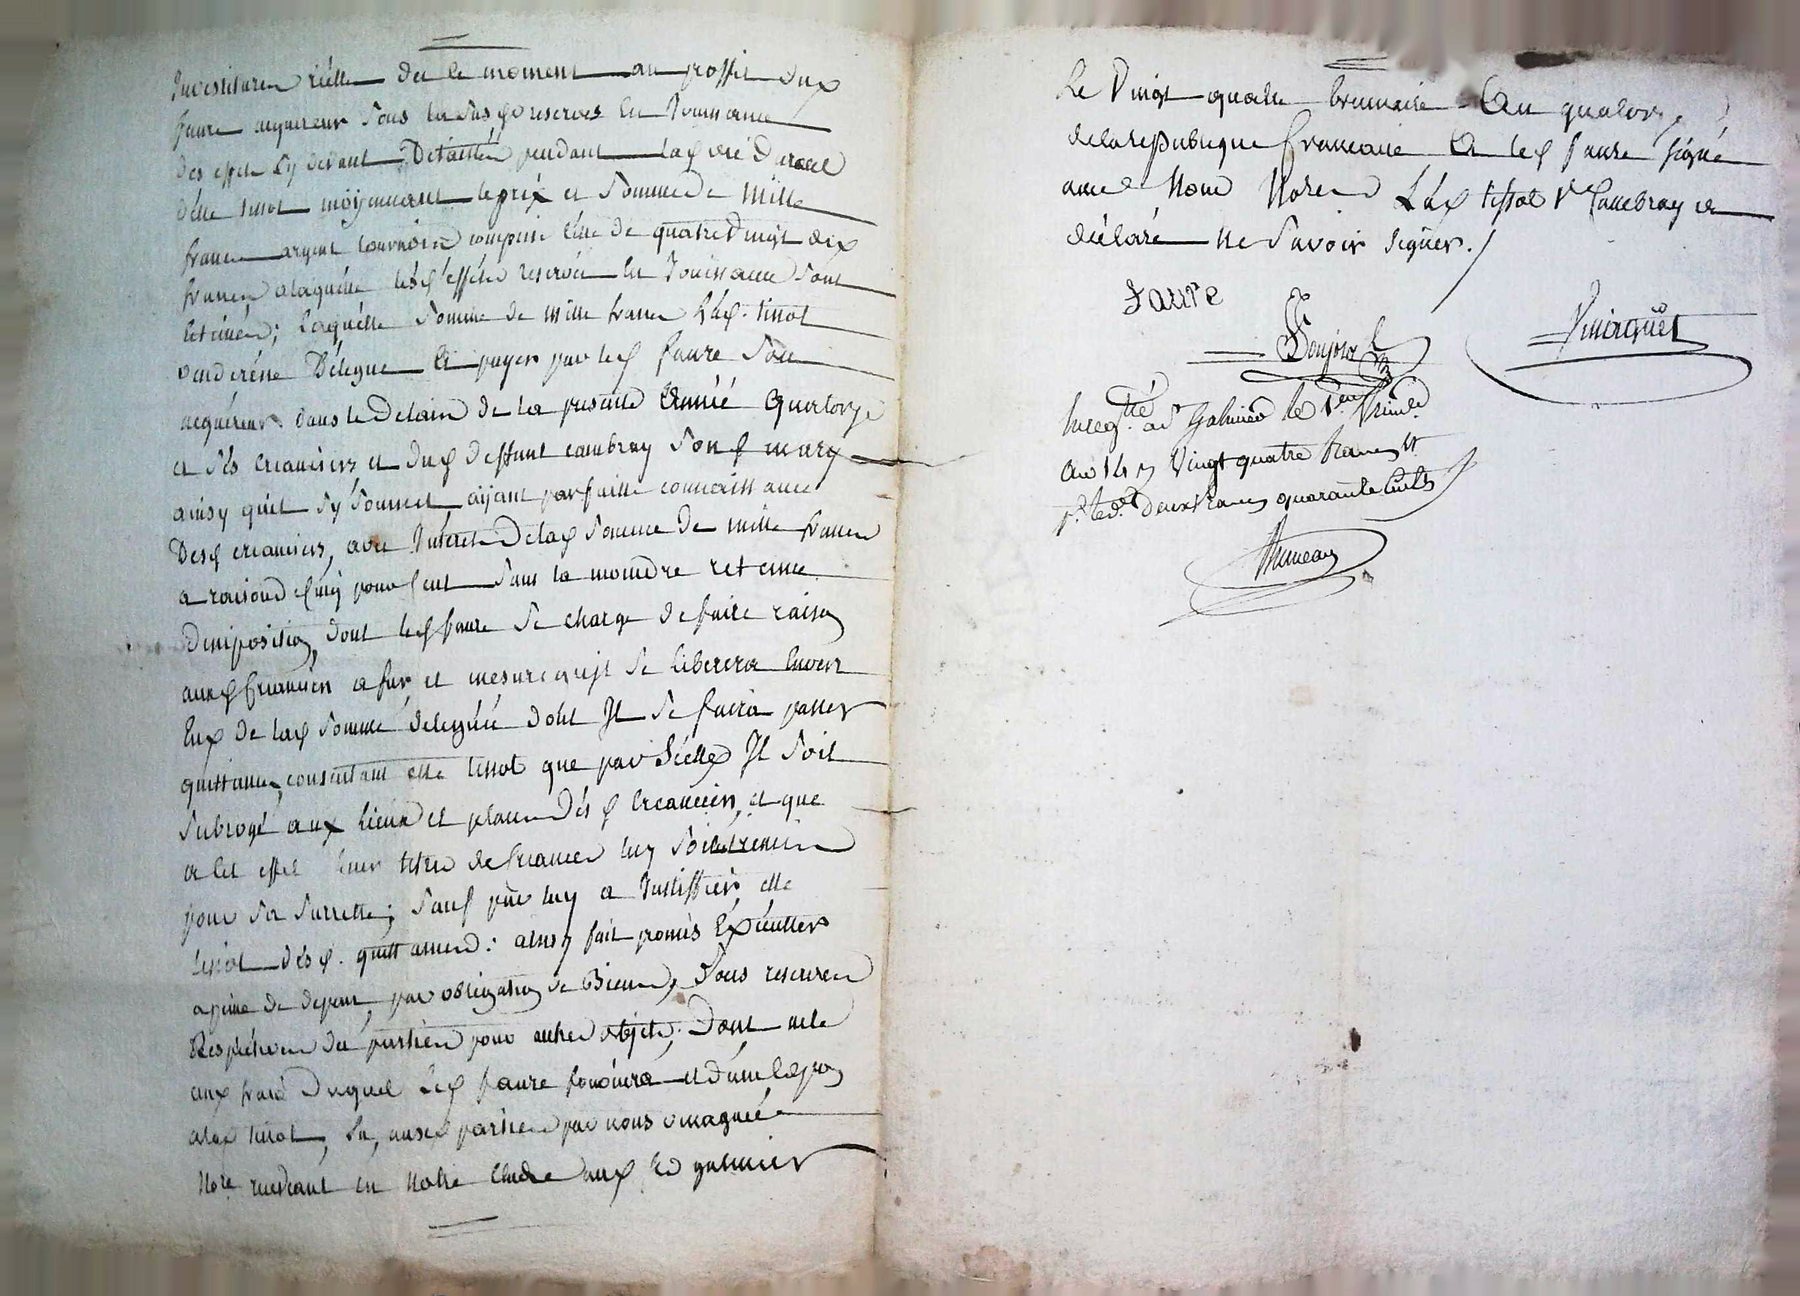 Investiture réelle de le moment au proffit dux
faure acquereur sous la sus q reserves en Jouissance
des effets cy devant Detaillés pendant la q vie d'icelle
delle tissot moyennant le prix et somme de mille
francs argent tournois compris celle de quatre vingt dix
francs alaquelle lesq effets reservés en Jouissance sont
Estimés; laquelle somme de mille francs Lad. tissot
venderesse Délegue à payer par led faure son
acquéreur dans le Delain de la presente Année Quatorze
a ses creanciers et duq deffunt cambray son q mary
ainsy qu'il sy soumet ayant parfaitte connaissance
Desq creanciers, avec Interet Delaq somme de mille francs
a raison de cinq pour cent sans la moindre retenue
D'imposition, dont led faure se charge de faire raison
auxq Creanciers a fur et mesure qu'jl se liberera Envers
Eux de laq somme déléguée dont Jl se faira passer
quittance, consentant elle tissot que par Icelles Jl soit
subrogé aux lieux et place Des q creanciers, et que
a cet effet leur titre de Creances luy soient remis
pour sa surrette; sauf par luy a Justiffier elle
tissot desq. quittances: ainsy fait promis Exécutter
a peine de depens, par obligation de Biens, Sous reserves
Respectives des parties pour autres objets; Dont acte
aux frais Duquel Led faure fournira et d'une Expon
alad tissot, Lu, auxd parties par nous vinaguée
Nore recevant en notre Etude aux Ed galmier
Le Vingt quatre brumaire An quatorze
de la republique francaise Et led faure signé
avec Nous Notre Lad tissot Ve Cambray a
déclaré ne savoir signer./
faure
Bonjour
Enregtré a St Galmier le 1er frimre
an 14 Vingt quatre francs
Deux francs quarante Cents